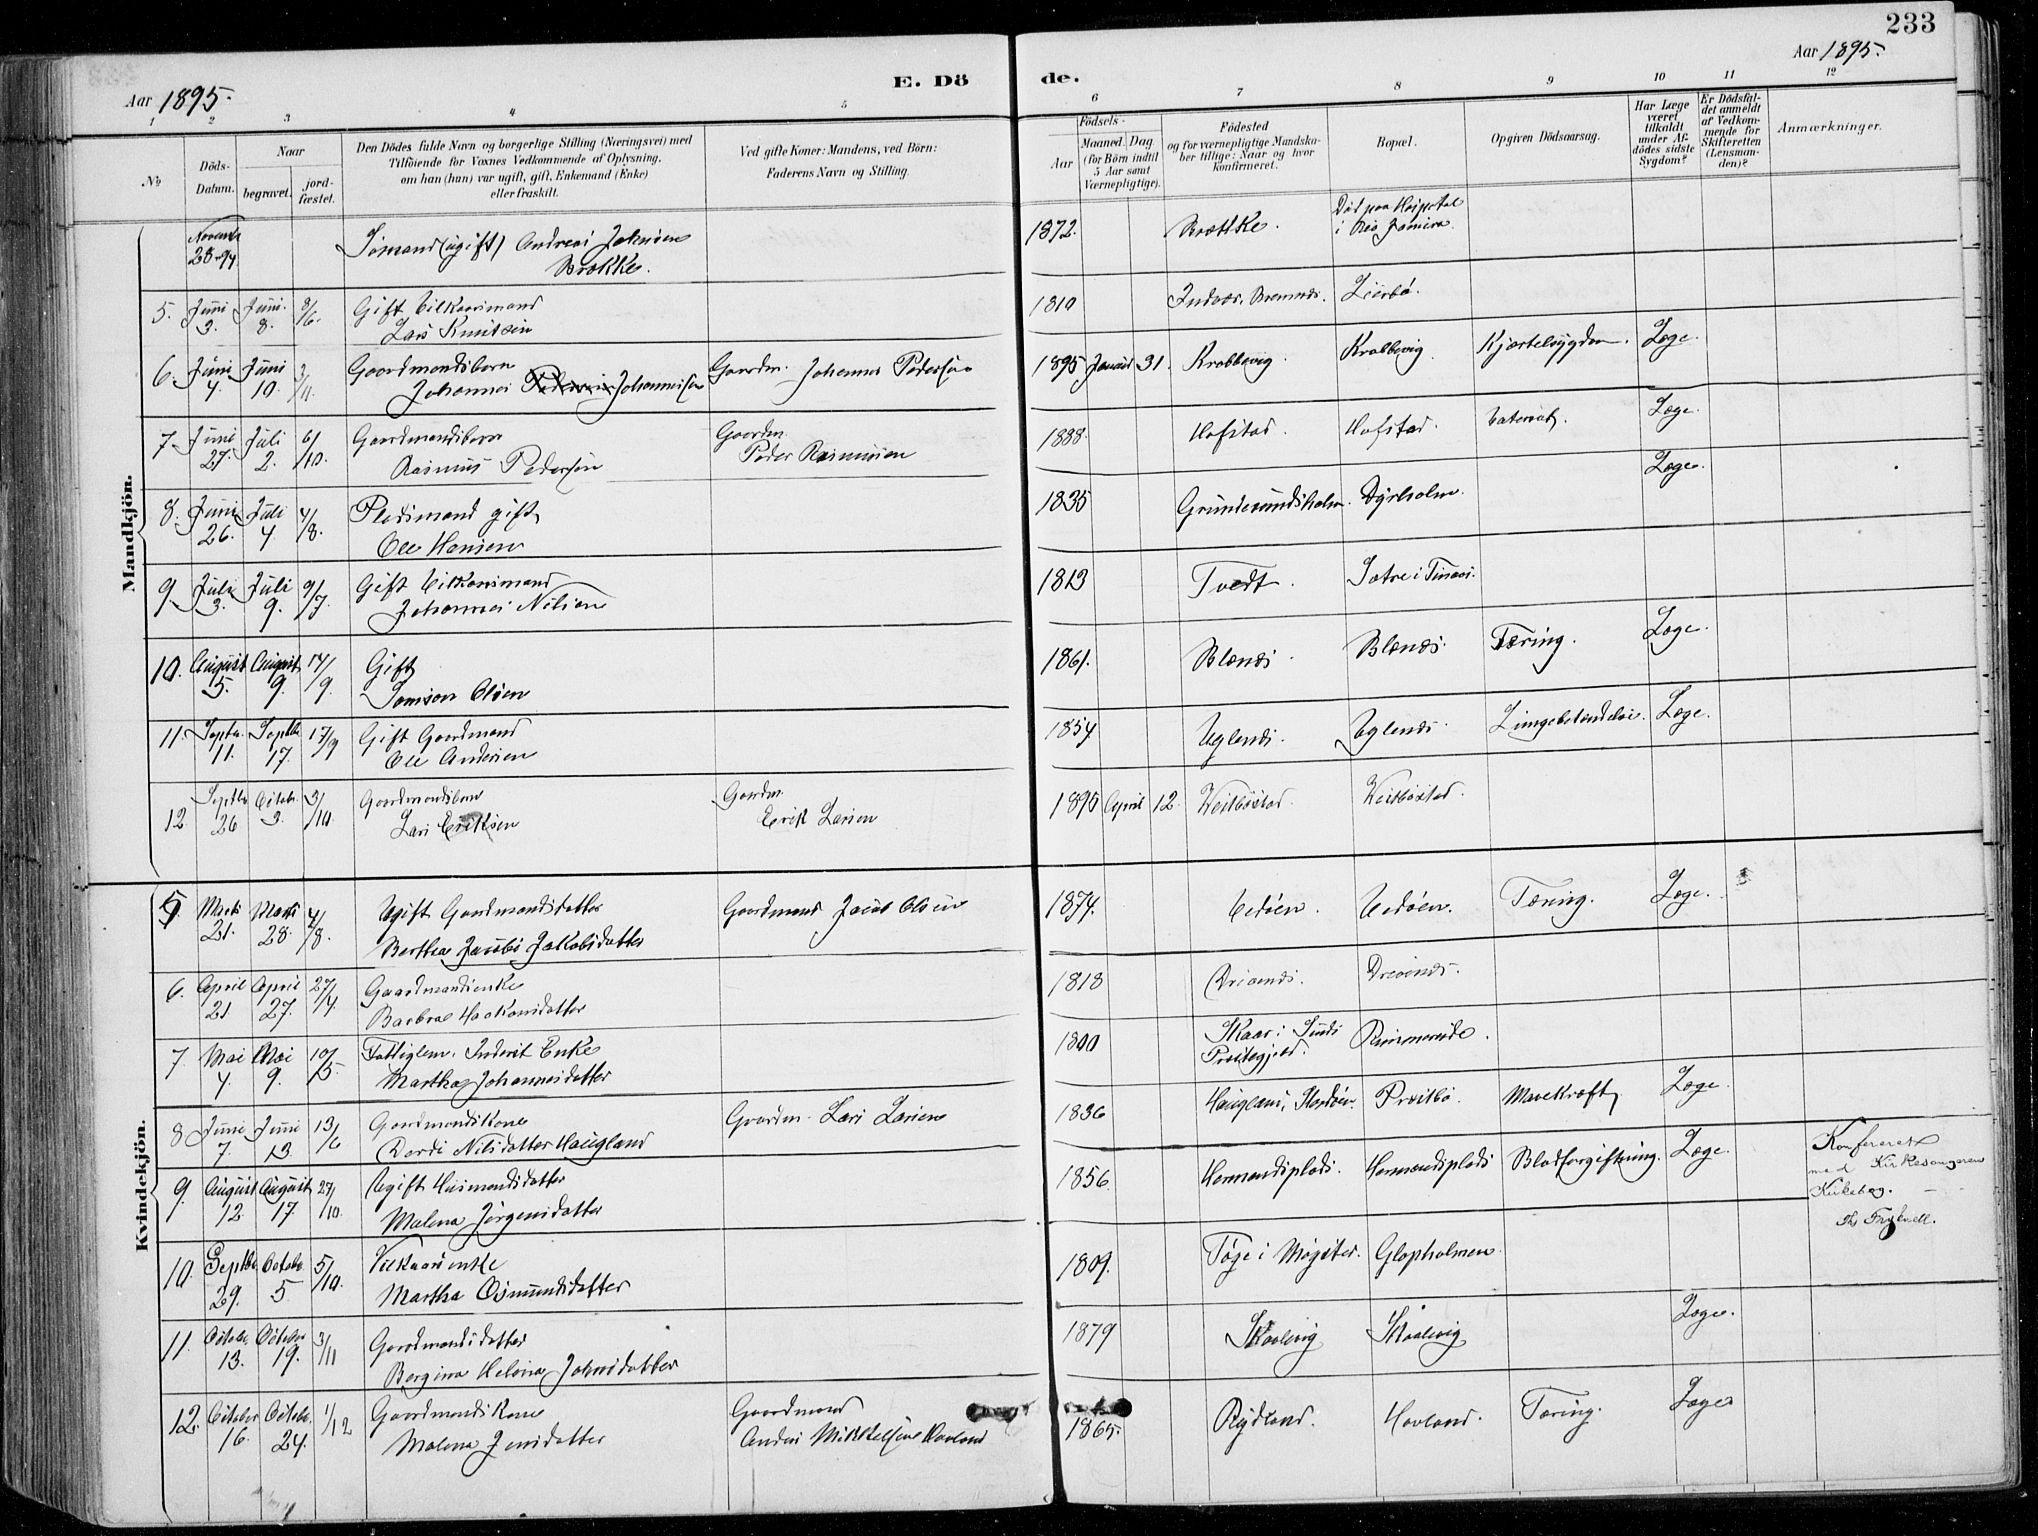 233
Aar 1895.
Aar 1895.
E. Dö
de.
1 2 3 4 5 6 7 8 9 10 11 12
№
Döds-
Datum.
Naar
begravet.
jord-
fæstet.
Den Dödes fulde Navn og borgerlige Stilling (Næringsvei) med
Tilföiende for Voxnes Vedkommende af Oplysning,
om han (hun) var ugift, gift, Enkemand (Enke)
eller fraskilt.
Ved gifte Koner: Mandens, ved Börn:
Faderens Navn og Stilling.
Födsels-
Aar
Maaned.
Dag
(for Börn indtil
5 Aar samt
Værnepligtige).
Födested
og for værnepligtige Mandska-
ber tillige: Naar og hvor
konfirmeret.
Bopæl.
Opgiven Dödsaarsag.
Har Læge
været
tilkaldt
under Af-
dödes sidste
Sygdom?
Er Dödsfal-
det anmeldt
af Vedkom-
mende for
Skifteretten
(Lensman-
den)?
Anmærkninger.
Mandkjön.
Novembr 28-94 Sömand (ugift) Andreas Johnsen Brække. 1872. Brække. Död paa Hospital i Rio Janeiro.
5. Juni 3. Juni 8. 8/6. Gift Vilkaarsmand Lars Knutsen 1810
6. Juni 4. Juni 10. 3/11. Gaardmandsbarn Johannes Pedersen Johannessen Gaardm. Johannes Pedersen 1895 Januar 31. Krabbevig. Krabbevig. Kjertelsygdom. Læge.
7. Juni 27. Juli 2. 6/10. Gaardmandsbarn Rasmus Pedersen Gaardm. Peder Rasmussen 1888. Hofstad. Hofstad. Læge.
8. Juni 26. Juli 4 4/8. Pladsmand gift Ole Hansen 1835 Grundesundsholm. Dyrholm. Læge.
9. Juli 3. Juli 9. 9/7. Gift Vilkaarsmand Johannes Nilsen 1813 Tvedt. Sætre i Tusnæs.
10. August 5. August 9. 14/9. Gift Samson Olsen 1861. Blænæs. Blænæs. Tæring. Læge.
11. Septbr. 11. Septbr 17. 17/9 Gift Gaardmand Ole Andersen 1854 Uglenæs. Uglenæs. Lungebetændelse. Læge.
12. Septbr 26 Octobr. 3. 3/10. Gaardmandsbarn Lars Eriksen Gaardm. Erik Larsen 1895 April 12. Vestbøstad. Vestbøstad.
Kvindekjön.
5 Marts 21. Marts 28. 4/8. Ugift Gaardmandsdatter Bertha Jacobs Jakobsdatter Gaardmand Jacob Olsen 1874. Uedøen. Uedøen. Tæring. Læge.
6. April 21 April 27. 27/4. Gaardmandsenke Barbroe Haakonsdatter 1818 Drivenæs. Drevenæs.
7. Mai 4. Mai 9. 10/5. Fattiglem. Inderst Enke Martha Johannesdatter 1800 Skaar i Sunds Præstegjeld. Rimmereide.
8 Juni 7. Juni 13. 13/6 Gaardmandskone Dordi Nilsdatter Haugland Gaardm. Lars Larsen 1836 Haugland, Stordøen. Prestbø. Mavekræft Læge.
9. August 12. August 17. 27/10. Ugift Husmandsdatter Malena Jørgensdatter 1856. Hermandsplads. Hermandsplads Blodforgiftning. Læge. Konfereret med Kirkesangerens Kirkebog.
10. Septbr. 29. Octobr. 5 5/10. Vilkaarsenke Martha Osmundsdatter 1809. Tøge i Møgster. Glopholmen.
11. Octobr. 13. October 19. 3/11 Gaardmandsdatter Bergina Helena Johnsdatter 1879 Skaalevig Skaalevig Læge.
12. October 16. Octobr. 24. 1/12 Gaardmandskone Malena Jensdatter Gaardmand Anders Mikkelsen Havland 1865. Rydland. Hovland. Tæring. Læge